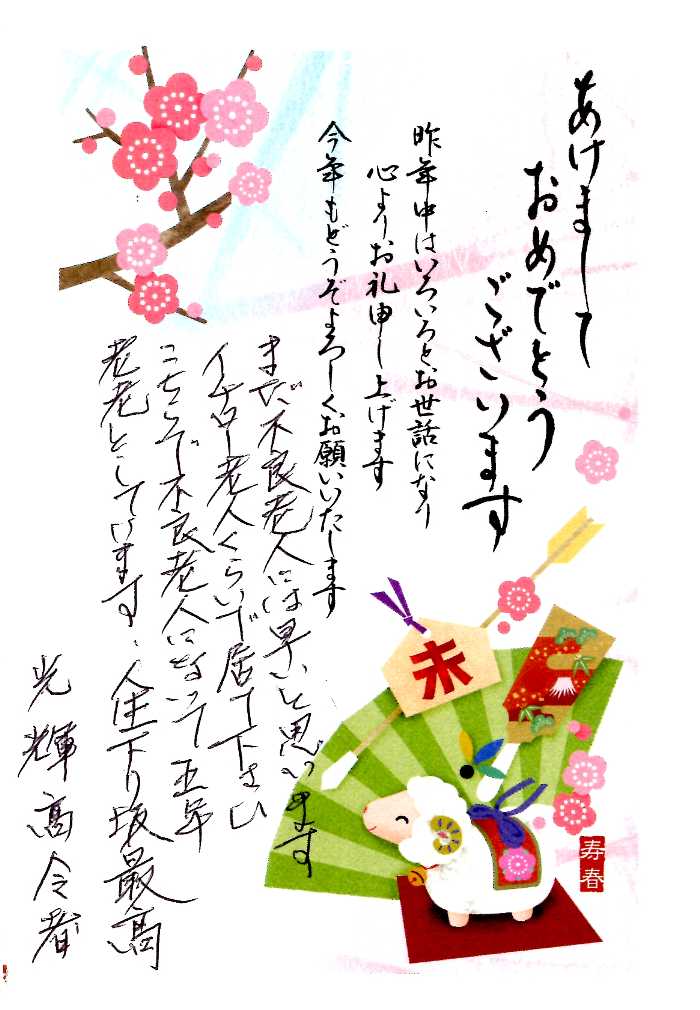 あけまして
おめでとう
ございます
昨年中はいろいろとお世話になり
心よりお礼申し上げます
今年もどうぞよろしくお願いいたします
まだ不良老人には早いと思います
イチロー老人くらいで居て下さい
こちらで不良老人になって五年
老老としています。人生下り坂最高
光輝高令者
未
寿春